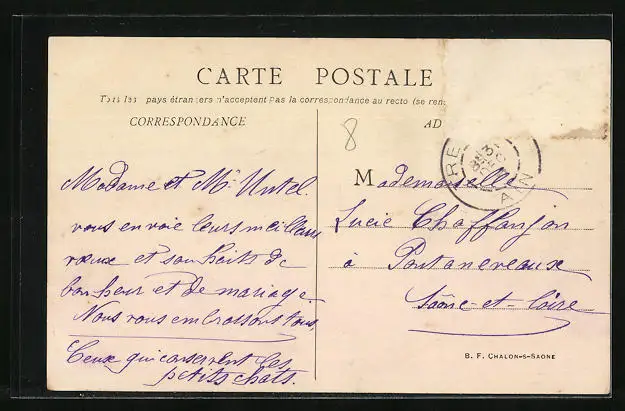 CARTE POSTALE
Tous les pays étrangers n'acceptent pas la correspondance au recto (se ren
CORRESPONDANCE
AD
8
RE
AIN
Madame et Mr
vous envoie leurs meilleurs
vœux et souhaits de
bonheur et de mariage.
Nous vous embrassons tous,
Ceux qui conservent les
petits chats.
Mademoiselle
Lucie Chaffanjon
à Pontanevaux
Saône-et-Loire
B. F. CHALON-S-SAONE